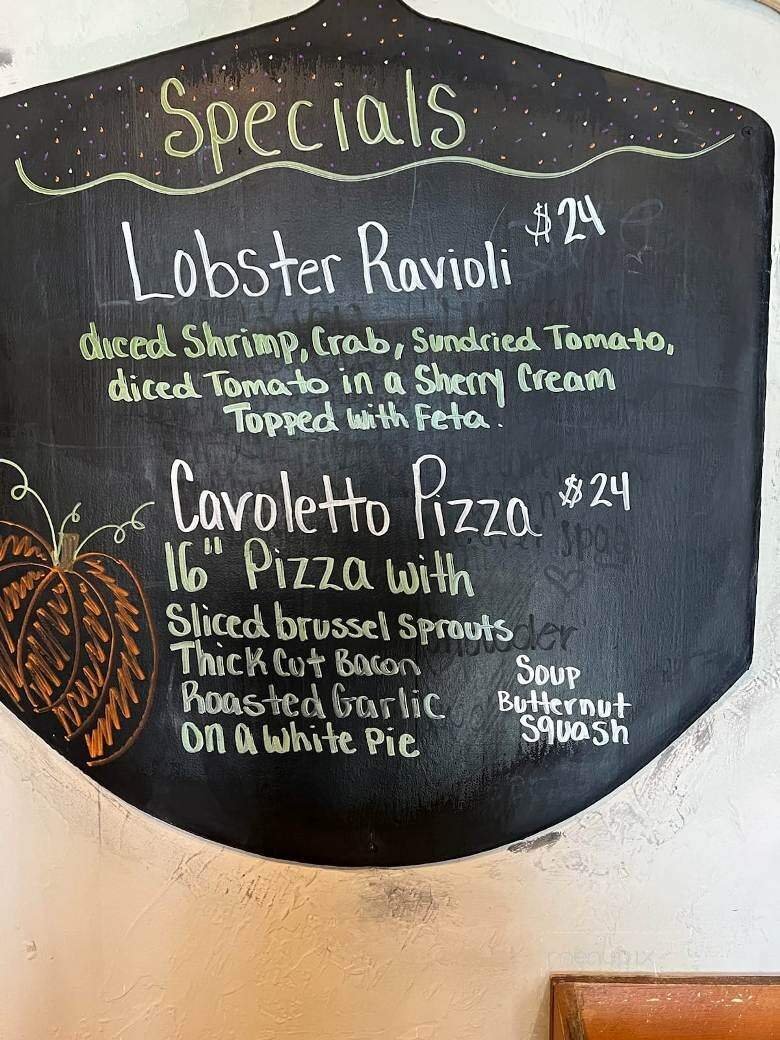 Specials
Lobster Ravioli $24
diced Shrimp, Crab, Sundried Tomato,
diced Tomato in a Sherry Cream
Topped with Feta.
Cavoletto Pizza $24
16" Pizza with
Sliced brussel sprouts
Thick Cut Bacon
Roasted Garlic
on a white pie
Soup
Butternut
Squash
menupix